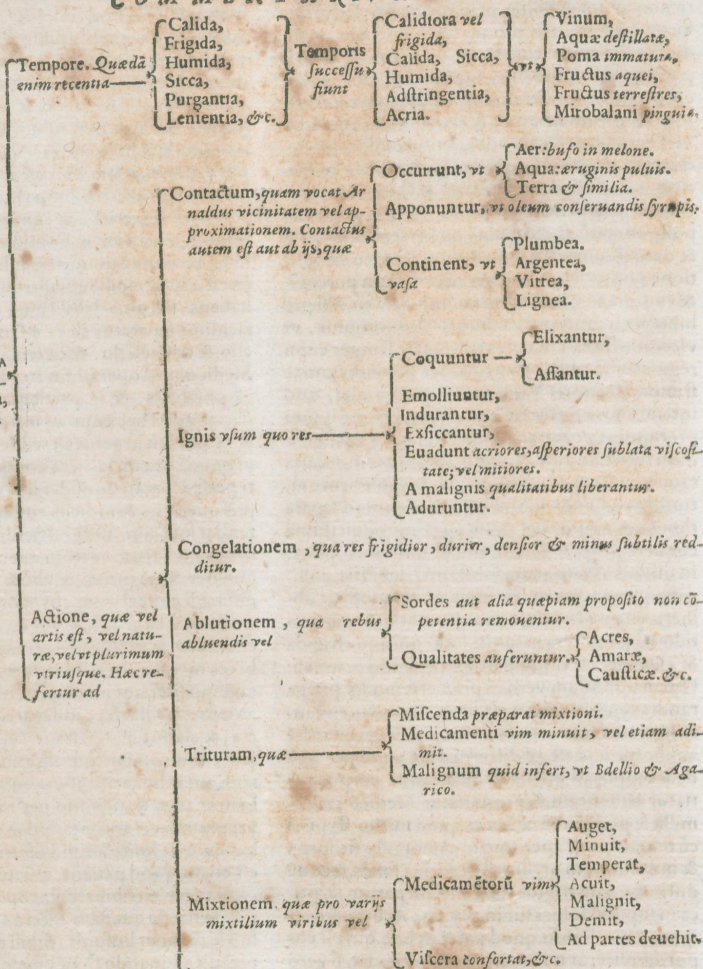 COMMENTARI
Tempore. Quædā
enim recentia
Calida,
Frigida,
Humida,
Sicca,
Purgantia,
Lenientia, &c.
Temporis
successu
fiunt
Calidiora vel
frigida,
Calida, Sicca,
Humida,
Adstringentia,
Acria.
vt
Vinum,
Aquæ destillatæ,
Poma immatura,
Fructus aquei,
Fructus terrestres,
Mirobalani pinguia.
Actione, quæ vel
artis est, vel natu-
ræ, vel vt plurimum
vtriusque. Hæc re-
fertur ad
Contactum, quam vocat Ar
naldus vicinitatem vel ap-
proximationem. Contactus
autem est aut ab ijs, quæ
Occurrunt, vt
Aer: bufo in melone.
Aqua: æruginis puluis.
Terra & similia.
Apponuntur, vt oleum conseruandis syrupis.
Continent, vt
vasa
Plumbea.
Argentea,
Vitrea,
Lignea.
Ignis vsum quo res
Coquuntur
Elixantur,
Assantur.
Emolliuntur,
Indurantur,
Exsiccantur,
Euadunt acriores, asperiores sublata viscosi-
tate; vel mitiores.
A malignis qualitatibus liberantur.
Aduruntur.
Congelationem, qua res frigidior, durior, densior & minus subtilis red-
ditur.
Ablutionem, qua rebus
abluendis vel
Sordes aut alia quæpiam proposito non cō-
petentia remouentur.
Qualitates auferuntur.
Acres,
Amaræ,
Causticæ. &c.
Trituram, quæ
Miscenda præparat mixtioni.
Medicamenti vim minuit, vel etiam adi-
mit.
Malignum quid infert, vt Bdellio & Aga-
rico.
Mixtionem, quæ pro varijs
mixtilium viribus vel
Medicamētorū vim
Auget,
Minuit,
Temperat,
Acuit,
Malignit,
Demit,
Ad partes deuehit.
Viscera confortat, &c.